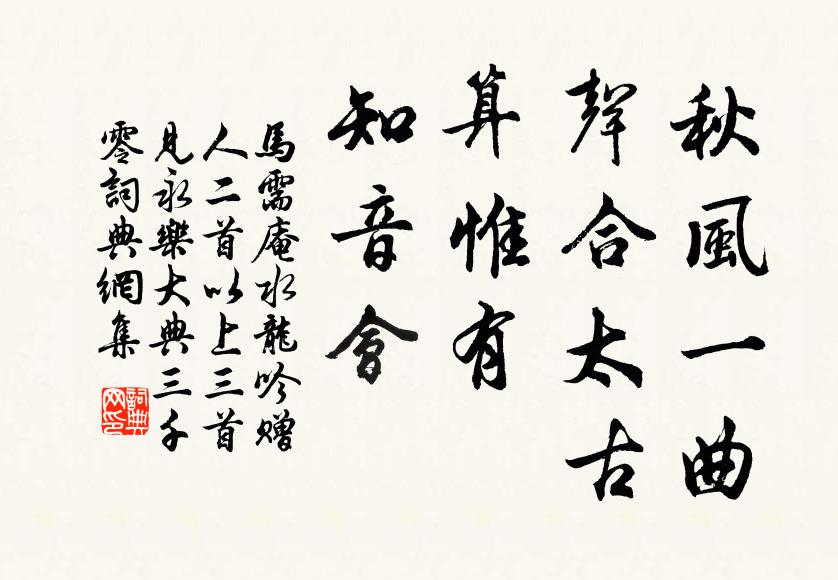 秋風一曲
聲合太古
算惟有
知音會
馬需庵水龍吟贈
人二首以上三首
見永樂大典三千
零詞典網集
詞典网印